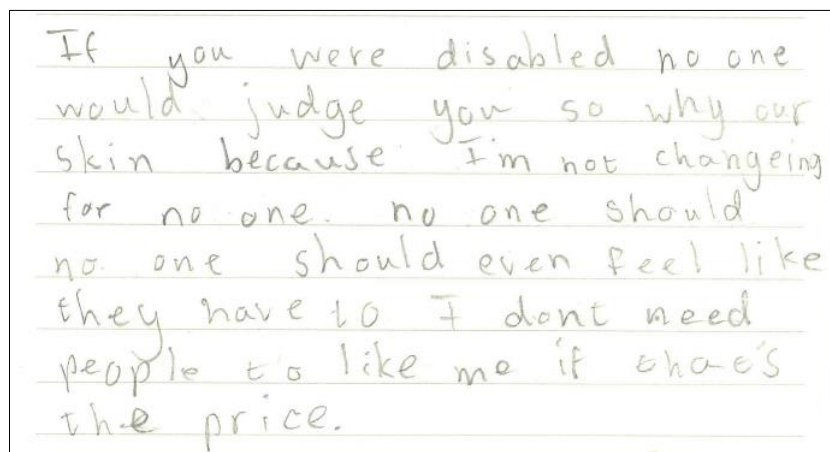 If you were disabled no one
would judge you so why our
skin because I'm not changeing
for no one. no one should
no one should even feel like
they have to I dont need
people to like me if that's
the price.